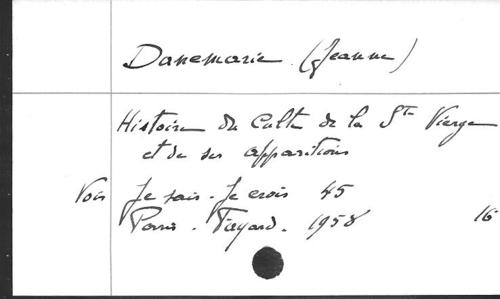 Danemarie (Jeanne)
Histoire du Culte de la Ste Vierge
et de ses apparitions
Voir Je sais - Je crois 45
Paris - Fayard - 1958 16